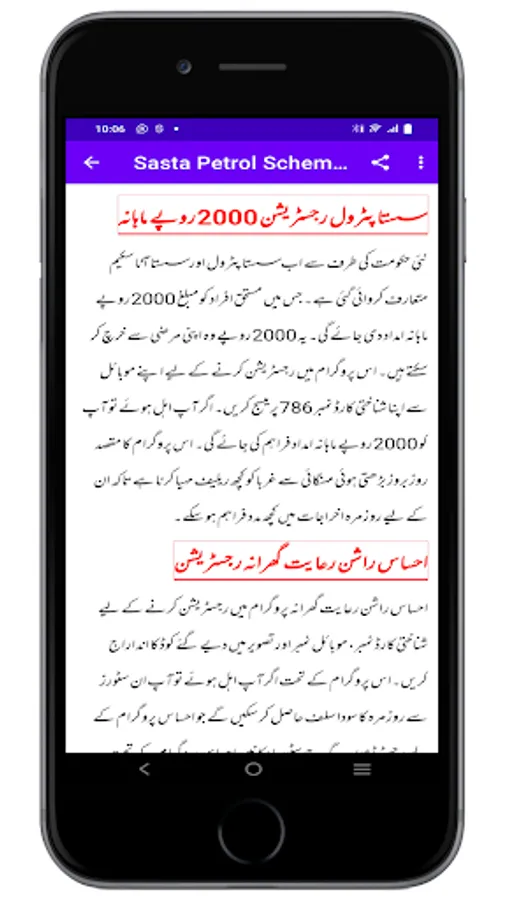 10:06
Sasta Petrol Schem...
سستا پٹرول رجسٹریشن 2000 روپے ماہانہ
نئی حکومت کی طرف سے اب سستا پٹرول اور سستا آٹا سکیم
متعارف کروائی گئی ہے۔ جس میں مستحق افراد کو مبلغ 2000 روپے
ماہانہ امداد دی جائے گی۔ یہ 2000 روپے وہ اپنی مرضی سے خرچ کر
سکتے ہیں۔ اس پروگرام میں رجسٹریشن کرنے کے لیے اپنے موبائل
سے اپنا شناختی کارڈ نمبر 786 پر میسج کریں۔ اگر آپ اہل ہوئے تو آپ
کو 2000 روپے ماہانہ امداد فراہم کی جائے گی۔ اس پروگرام کا مقصد
روز بروز بڑھتی ہوئی مہنگائی سے غربا کو کچھ ریلیف مہیا کرنا ہے تاکہ ان
کے لیے روزمرہ اخراجات میں کچھ مدد فراہم ہو سکے۔
احساس راشن رعایت گھرانہ رجسٹریشن
احساس راشن رعایت گھرانہ پروگرام میں رجسٹریشن کرنے کے لیے
شناختی کارڈ نمبر، موبائل نمبر اور تصویر میں دیے گئے کوڈ کا اندراج
کریں۔ اس پروگرام کے تحت اگر آپ اہل ہوئے تو آپ ان سٹورز
سے روزمرہ کا سودا سلف حاصل کر سکیں گے جو احساس پروگرام کے